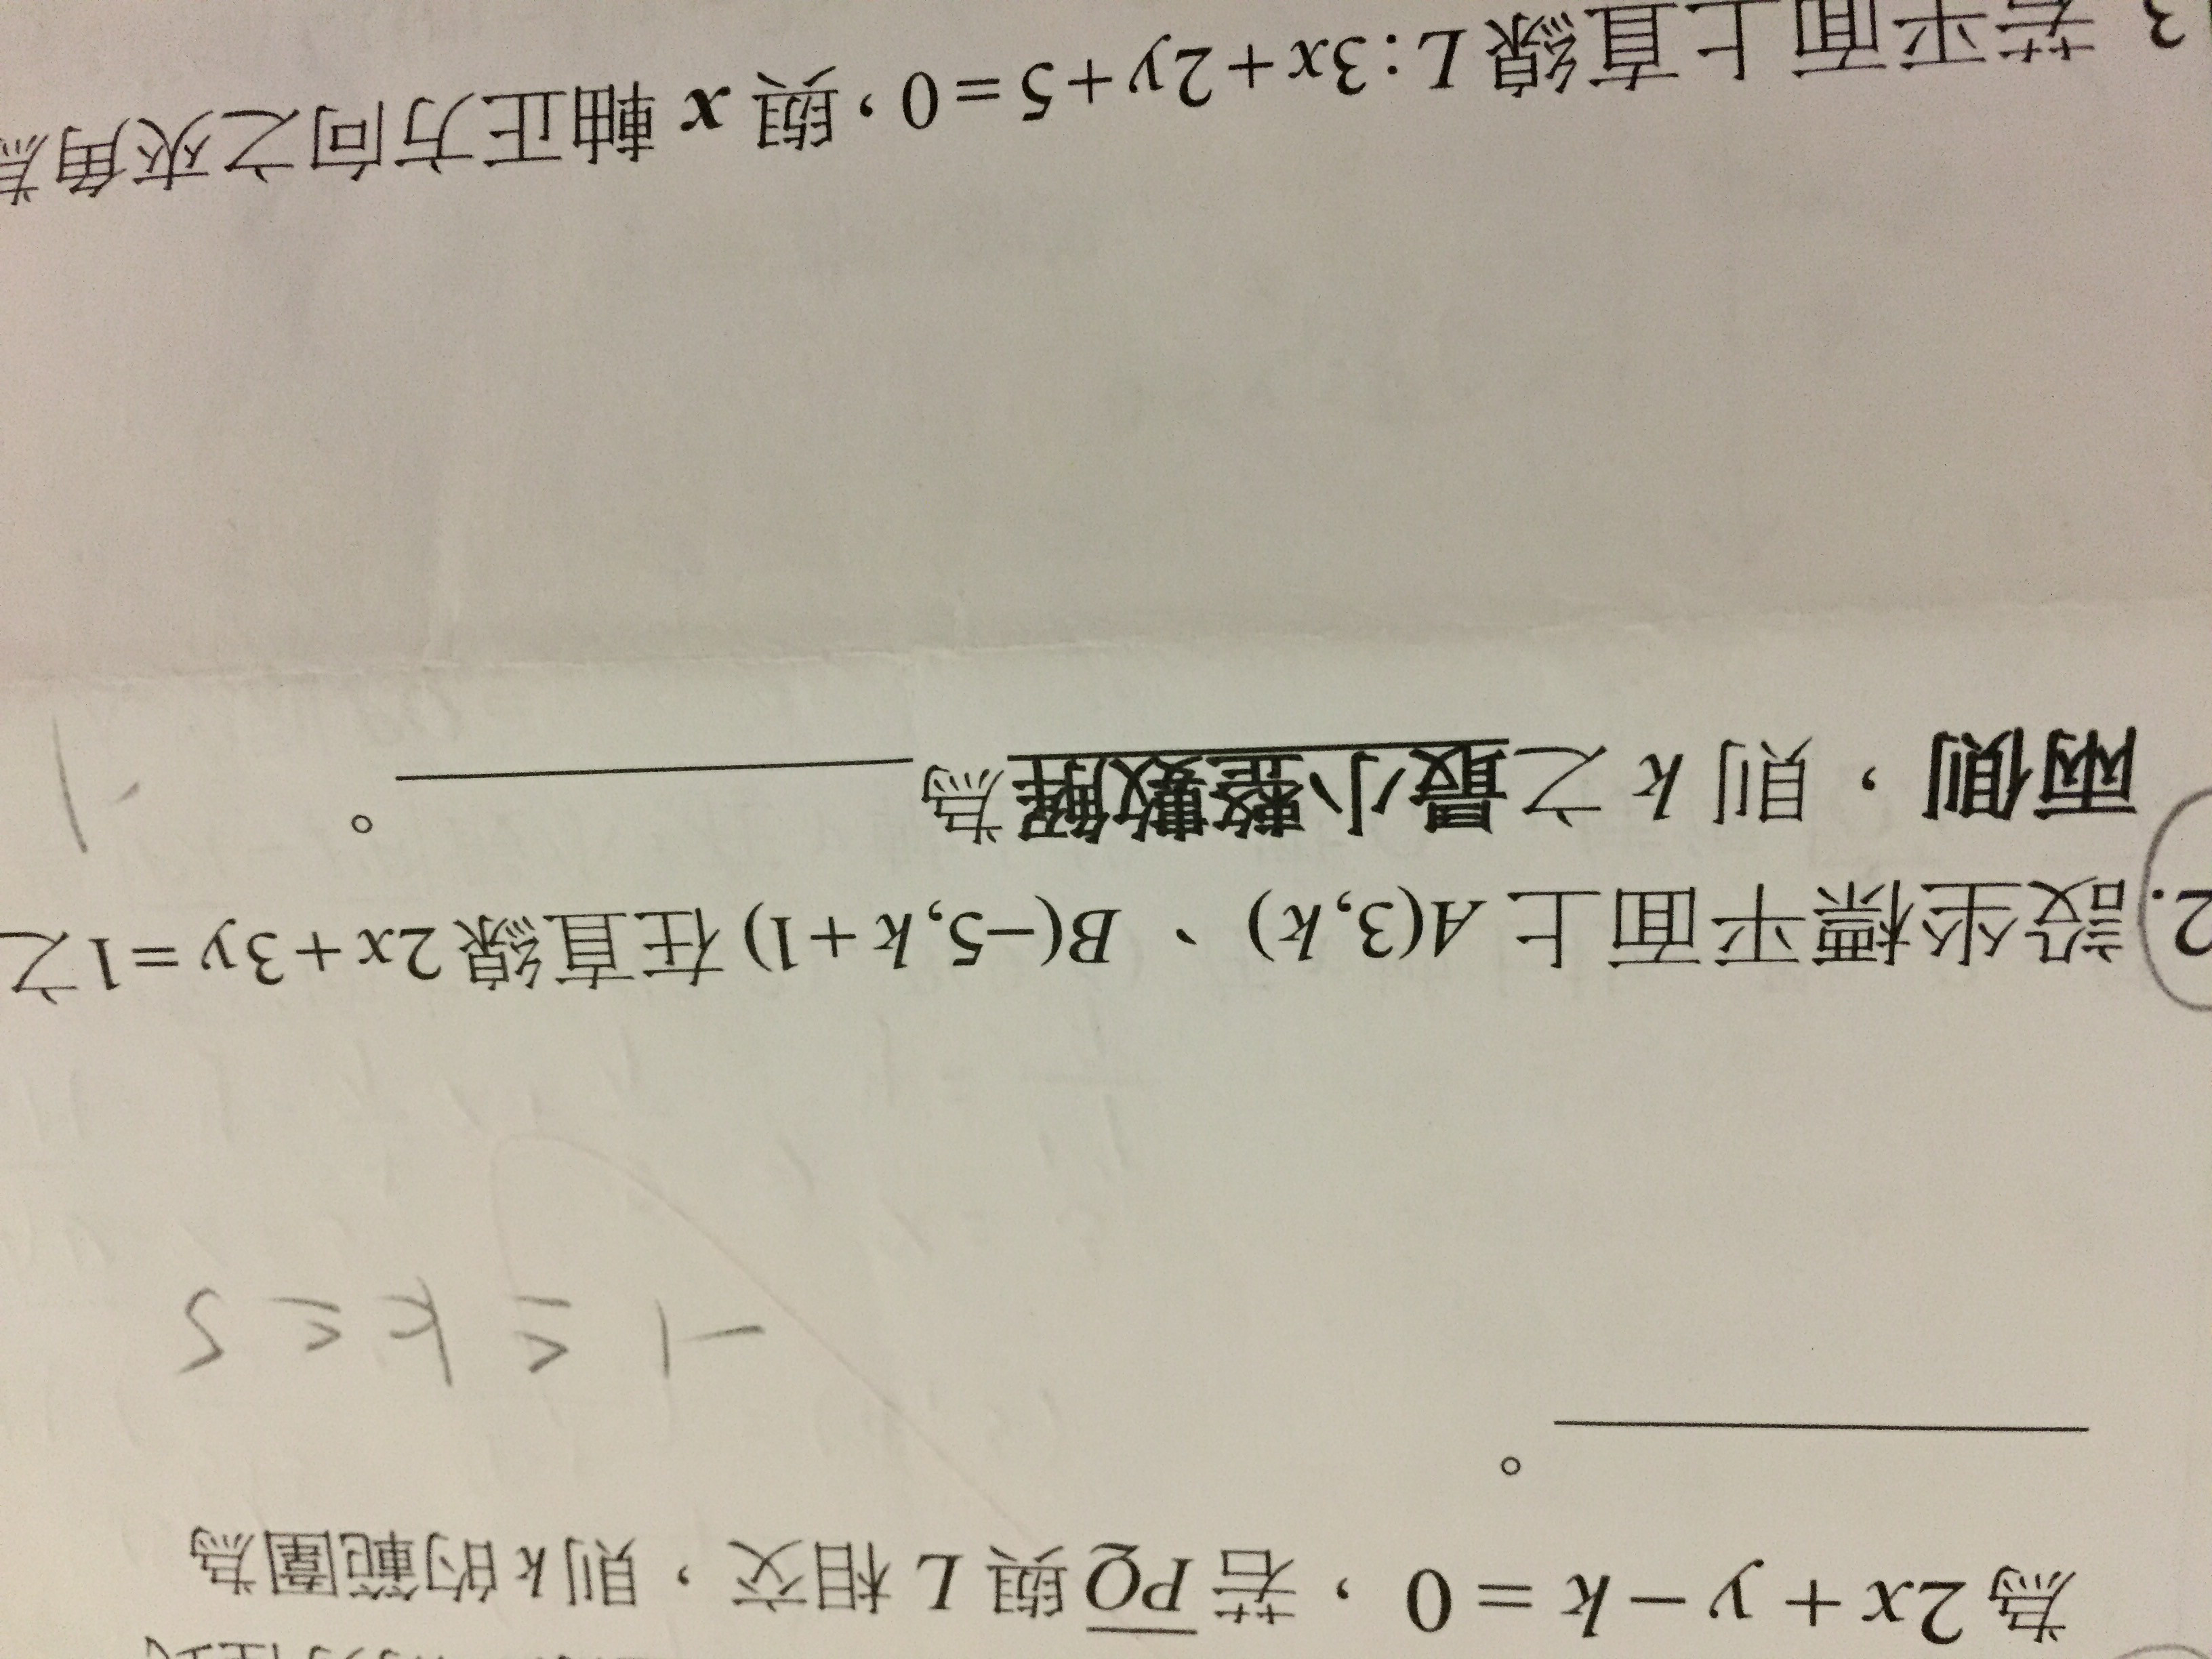 為 2x + y − k = 0，若 PQ 與 L 相交，則 k 的範圍為
。
-1 ≤ k ≤ 5
2. 設坐標平面上 A(3, k)、B(−5, k+1) 在直線 2x+3y=1 之
兩側，則 k 之最小整數解為 。
-1
3 若平面上直線 L : 3x+2y+5=0，與 x 軸正方向之夾角為